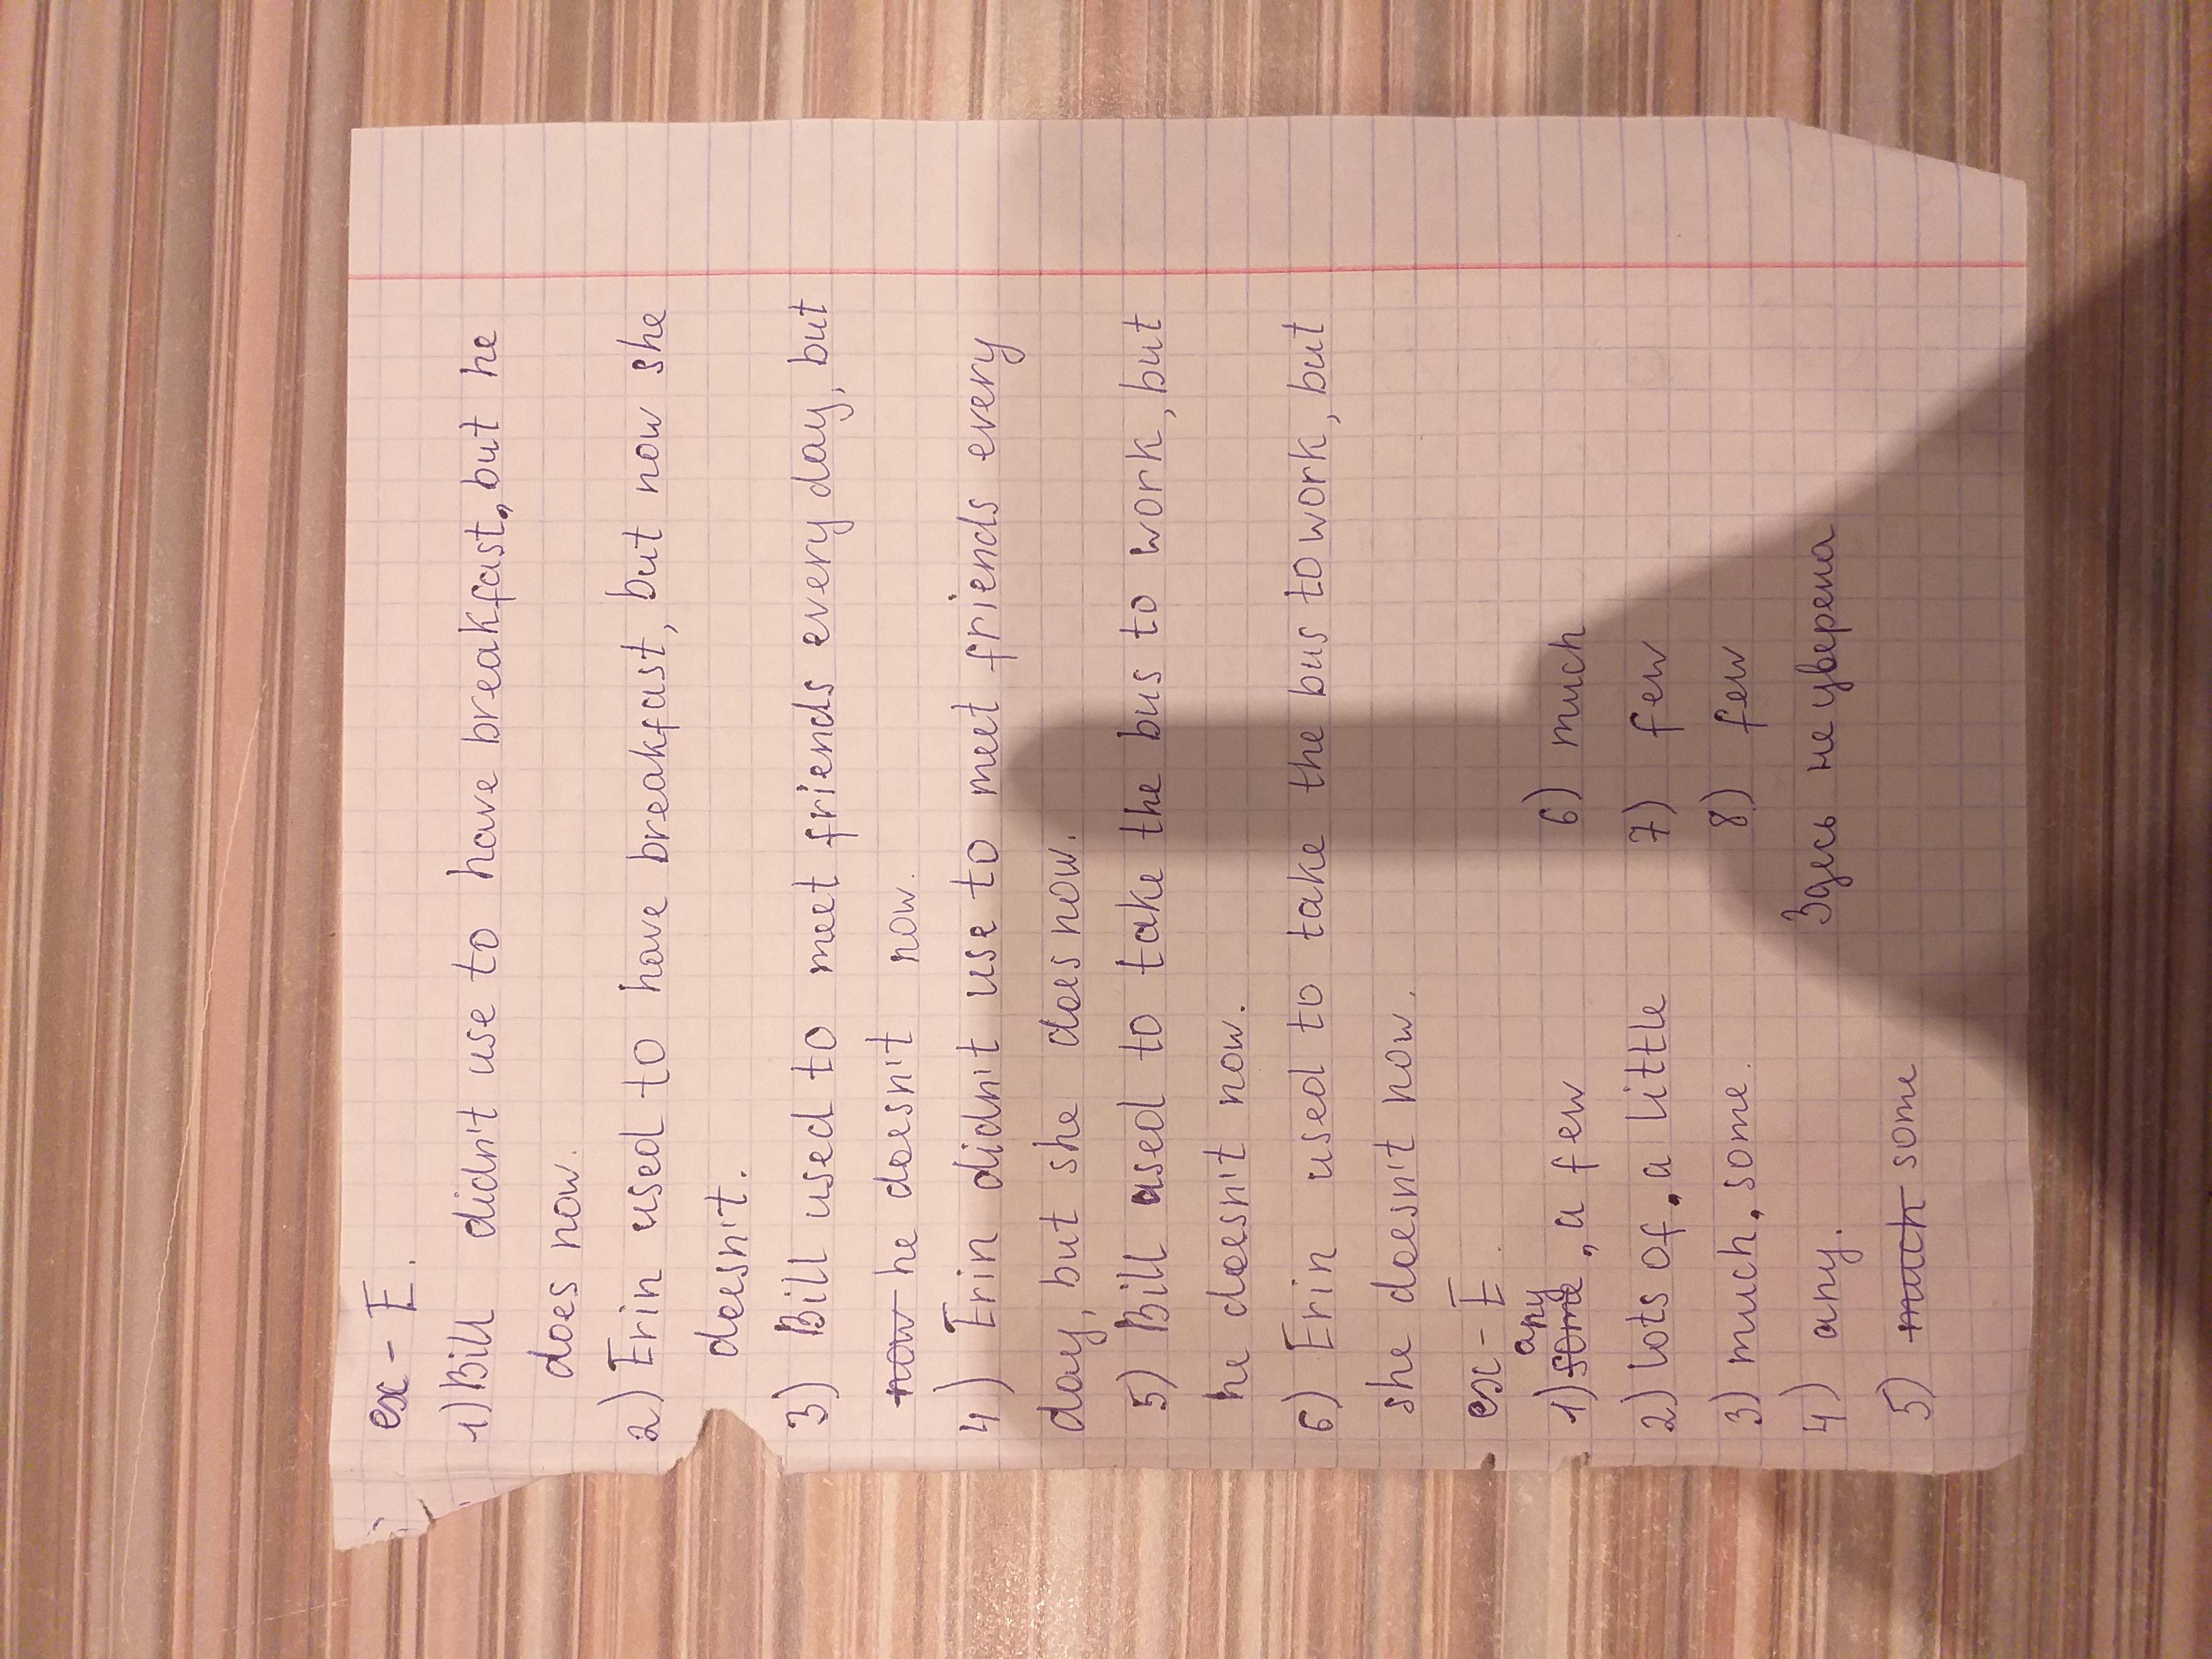 ex - E.
1) Bill didn't use to have breakfast, but he
does now.
2) Erin used to have breakfast, but now she
doesn't.
3) Bill used to meet friends every day, but
now he doesn't now.
4) Erin didn't use to meet friends every
day, but she does now.
5) Bill used to take the bus to work, but
he doesn't now.
6) Erin used to take the bus to work, but
she doesn't now.
ex - E
any
1) some, a few
2) lots of, a little
3) much, some.
4) any.
5) much some
6) much
7) few
8) few
Здесь не уверена